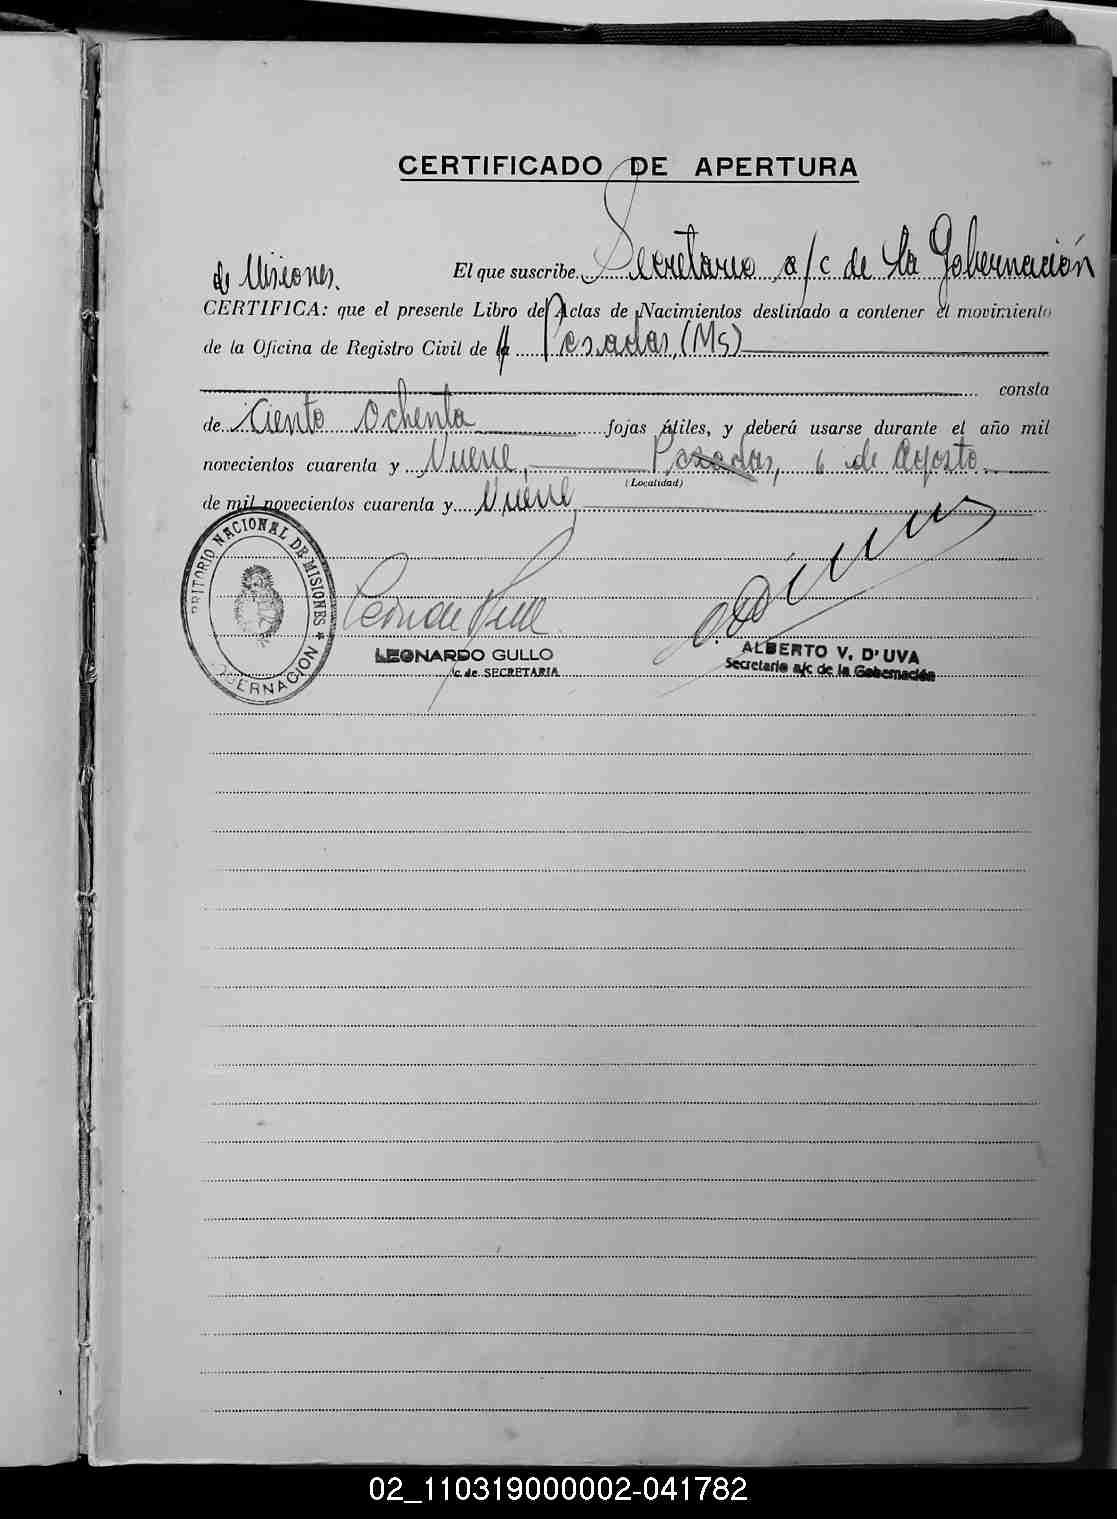 CERTIFICADO DE APERTURA
El que suscribe Secretario a/c de la Gobernación
de Misiones.
CERTIFICA: que el presente Libro de Actas de Nacimientos destinado a contener el movimiento
de la Oficina de Registro Civil de Posadas, (Ms)
consta
de Ciento Ochenta fojas útiles, y deberá usarse durante el año mil
novecientos cuarenta y Nueve, Posadas, 6 de Agosto
(Localidad)
de mil novecientos cuarenta y Nueve,
TERRITORIO NACIONAL DE MISIONES * GOBERNACION
LEONARDO GULLO
c. de SECRETARIA
ALBERTO V. D'UVA
Secretario a/c de la Gobernación
02_110319000002-041782